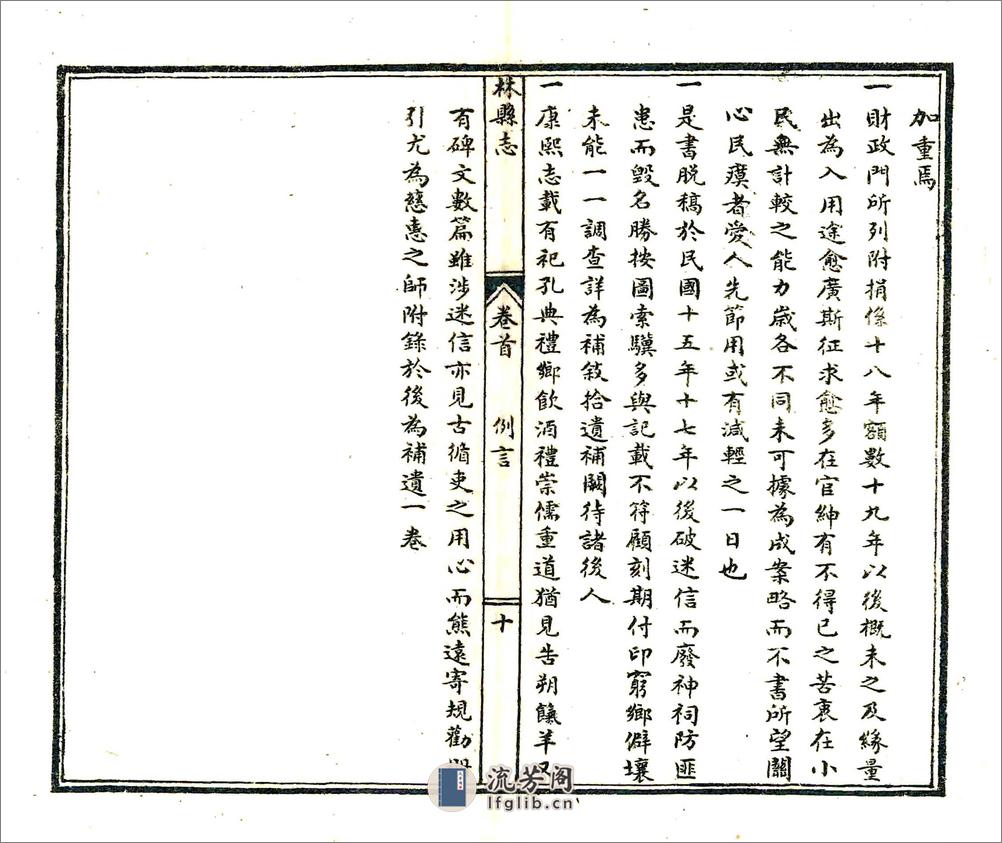 加重焉
一財政門所列附捐係十八年額數十九年以後概未之及緣量
出為入用途愈廣斯征求愈多在官紳有不得已之苦衷在小
民無計較之能力歲各不同未可據為成案略而不書所望關
心民瘼者愛人先節用或有減輕之一日也
一是書脫稿於民國十五年十七年以後破迷信而廢神祠防匪
患而毀名勝按圖索驥多與記載不符顧刻期付印窮鄉僻壤
未能一一調查詳為補敘拾遺補闕待諸後人
一康熙志載有祀孔典禮鄉飲酒禮崇儒重道猶見告朔餼羊
林縣志
卷首 例言
十
有碑文數篇雖涉迷信亦見古循吏之用心而熊遠寄規勸
引尤為慈惠之師附錄於後為補遺一卷
流芳阁
lfglib.cn